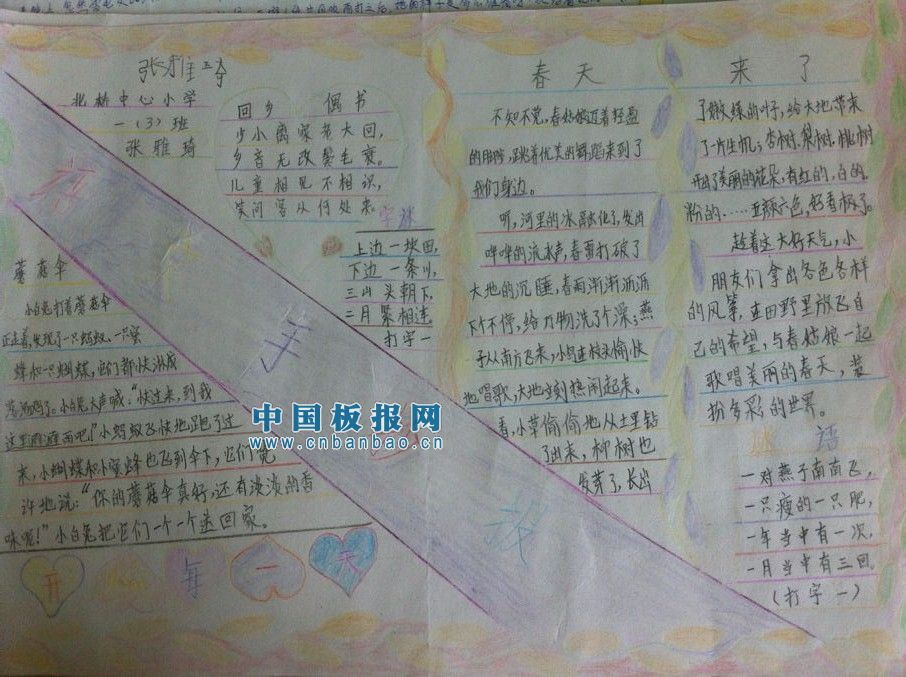 张雅琦
北桥中心小学
一(3)班
张雅琦
回乡 偶书
少小离家老大回,
乡音无改鬓毛衰。
儿童相见不相识,
笑问客从何处来
字谜
上边一块田,
下边一条川,
三山头朝下,
二月紧相连
打字一
蘑菇伞
小白兔打着蘑菇伞
正走着,发现了一只蚂蚁、一只蜜
蜂和一只蝴蝶,它们都快淋成
落汤鸡了。小兔大声喊:“快过来,到我
这里避避雨吧!”小蚂蚁飞快地跑了过
来,小蝴蝶和小蜜蜂也飞到伞下,它们
许地说:“你的蘑菇伞真好,还有淡淡的香
味呢!”小白兔把它们一个一个送回家。
开
每一天
手
报
春天来了
不知不觉,春姑娘迈着轻盈
的脚步,跳着优美的舞蹈来到了
我们身边。
听,河里的冰融化了,发出
哗哗的流水声,春雷打破了
大地的沉睡,春雨淅淅沥沥
下个不停,给万物洗了个澡;燕
子从南方飞来,小鸟在枝头愉快
地唱歌,大地立刻热闹起来。
看,小草偷偷地从土里钻
了出来,柳树也
发芽了,长出
了嫩绿的叶子,给大地带来
了一片生机;杏树、梨树、桃树
开了美丽的花朵,有红的、白的、
粉的……五颜六色,好看极了。
趁着这大好天气,小
朋友们拿出各色各样
的风筝,在田野里放飞自
己的希望,与春姑娘一起
歌唱美丽的春天,
扮多彩的世界。
谜语
一对燕子南南飞,
一只瘦的一只肥,
一年当中有一次,
一月当中有三回。
(打字一)
中国板报网
www.cnbanbao.cn